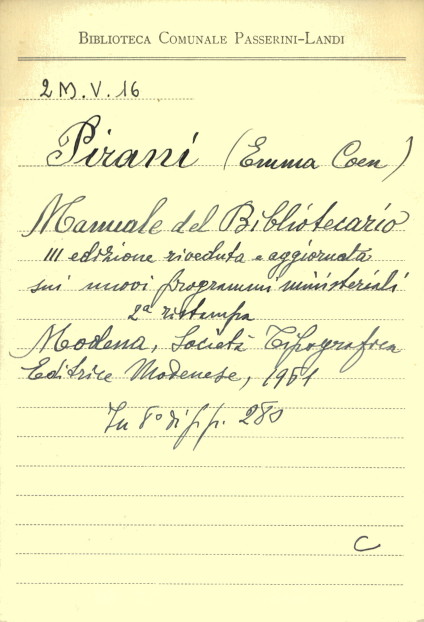 BIBLIOTECA COMUNALE PASSERINI-LANDI
2 M. V. 16
Pirani (Emma Coen)
Manuale del Bibliotecario
III edizione riveduta e aggiornata
sui nuovi programmi ministeriali
2ª ristampa
Modena, Società Tipografica
Editrice Modenese, 1951
In 8º di pp. 280
C